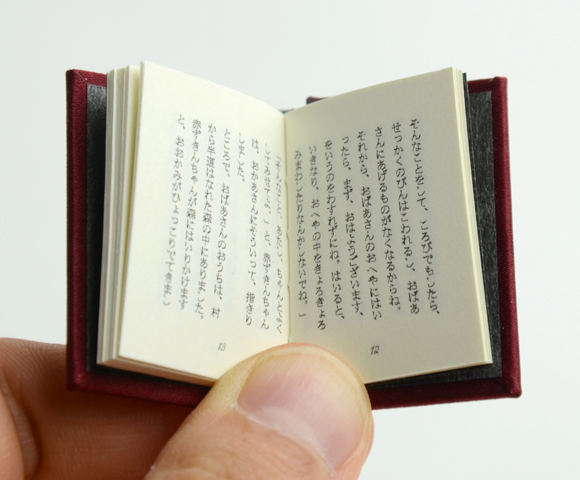 そんなことをして、ころびでもしたら、
せっかくのびんはこわれるし、おばあ
さんにあげるものがなくなるからね。
それから、おばあさんのおへやにはい
ったら、まず、おはようございます、
をいうのをわすれずにね。はいると、
いきなり、おへやの中をきょろきょろ
みまわしたりなんかしないでね。」
12
「そんなこと、あたし、ちゃんとよく
してみせてよ。」と、赤ずきんちゃん
は、おかあさんにそういって、指きり
しました。
ところで、おばあさんのおうちは、村
から半道はなれた森の中にありました。
赤ずきんちゃんが森にはいりかけます
と、おおかみがひょっこりでてきまし
13